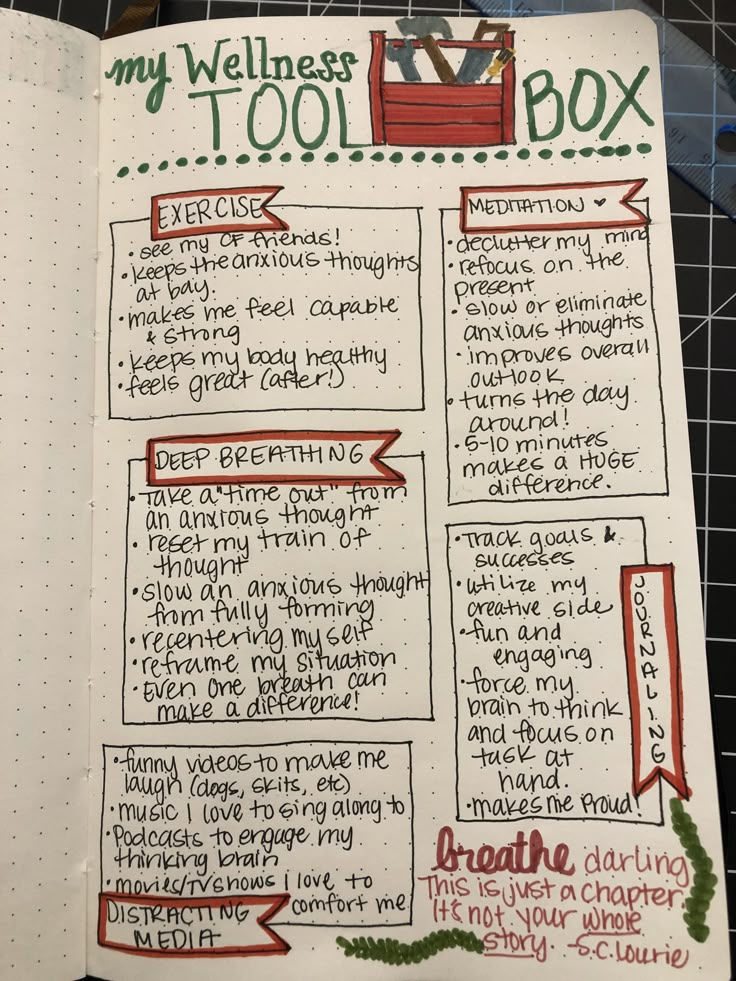 my Wellness
TOOL BOX
EXERCISE
• see my CF friends!
• keeps the anxious thoughts
at bay.
• makes me feel capable
& strong
• keeps my body healthy
• feels great (after!)
MEDITATION ♥
• declutter my mind
• refocus on the
present
• slow or eliminate
anxious thoughts
• improves overall
outlook
• turns the day
around!
• 5-10 minutes
makes a HUGE
difference.
DEEP BREATHING
• Take a "time out" from
an anxious thought
• reset my train of
thought
• slow an anxious thought
from fully forming
• recentering myself
• reframe my situation
• Even one breath can
make a difference!
JOURNALING
• Track goals &
successes
• utilize my
creative side
• fun and
engaging
• force my
brain to think
and focus on
task at
hand.
• makes me proud!
• funny videos to make me
laugh (dogs, skits, etc)
• music I love to sing along to
• Podcasts to engage my
thinking brain
• movies/TV shows i love to
comfort me
DISTRACTING
MEDIA
breathe darling
This is just a chapter.
It's not your whole
story. -S.C. Lourie